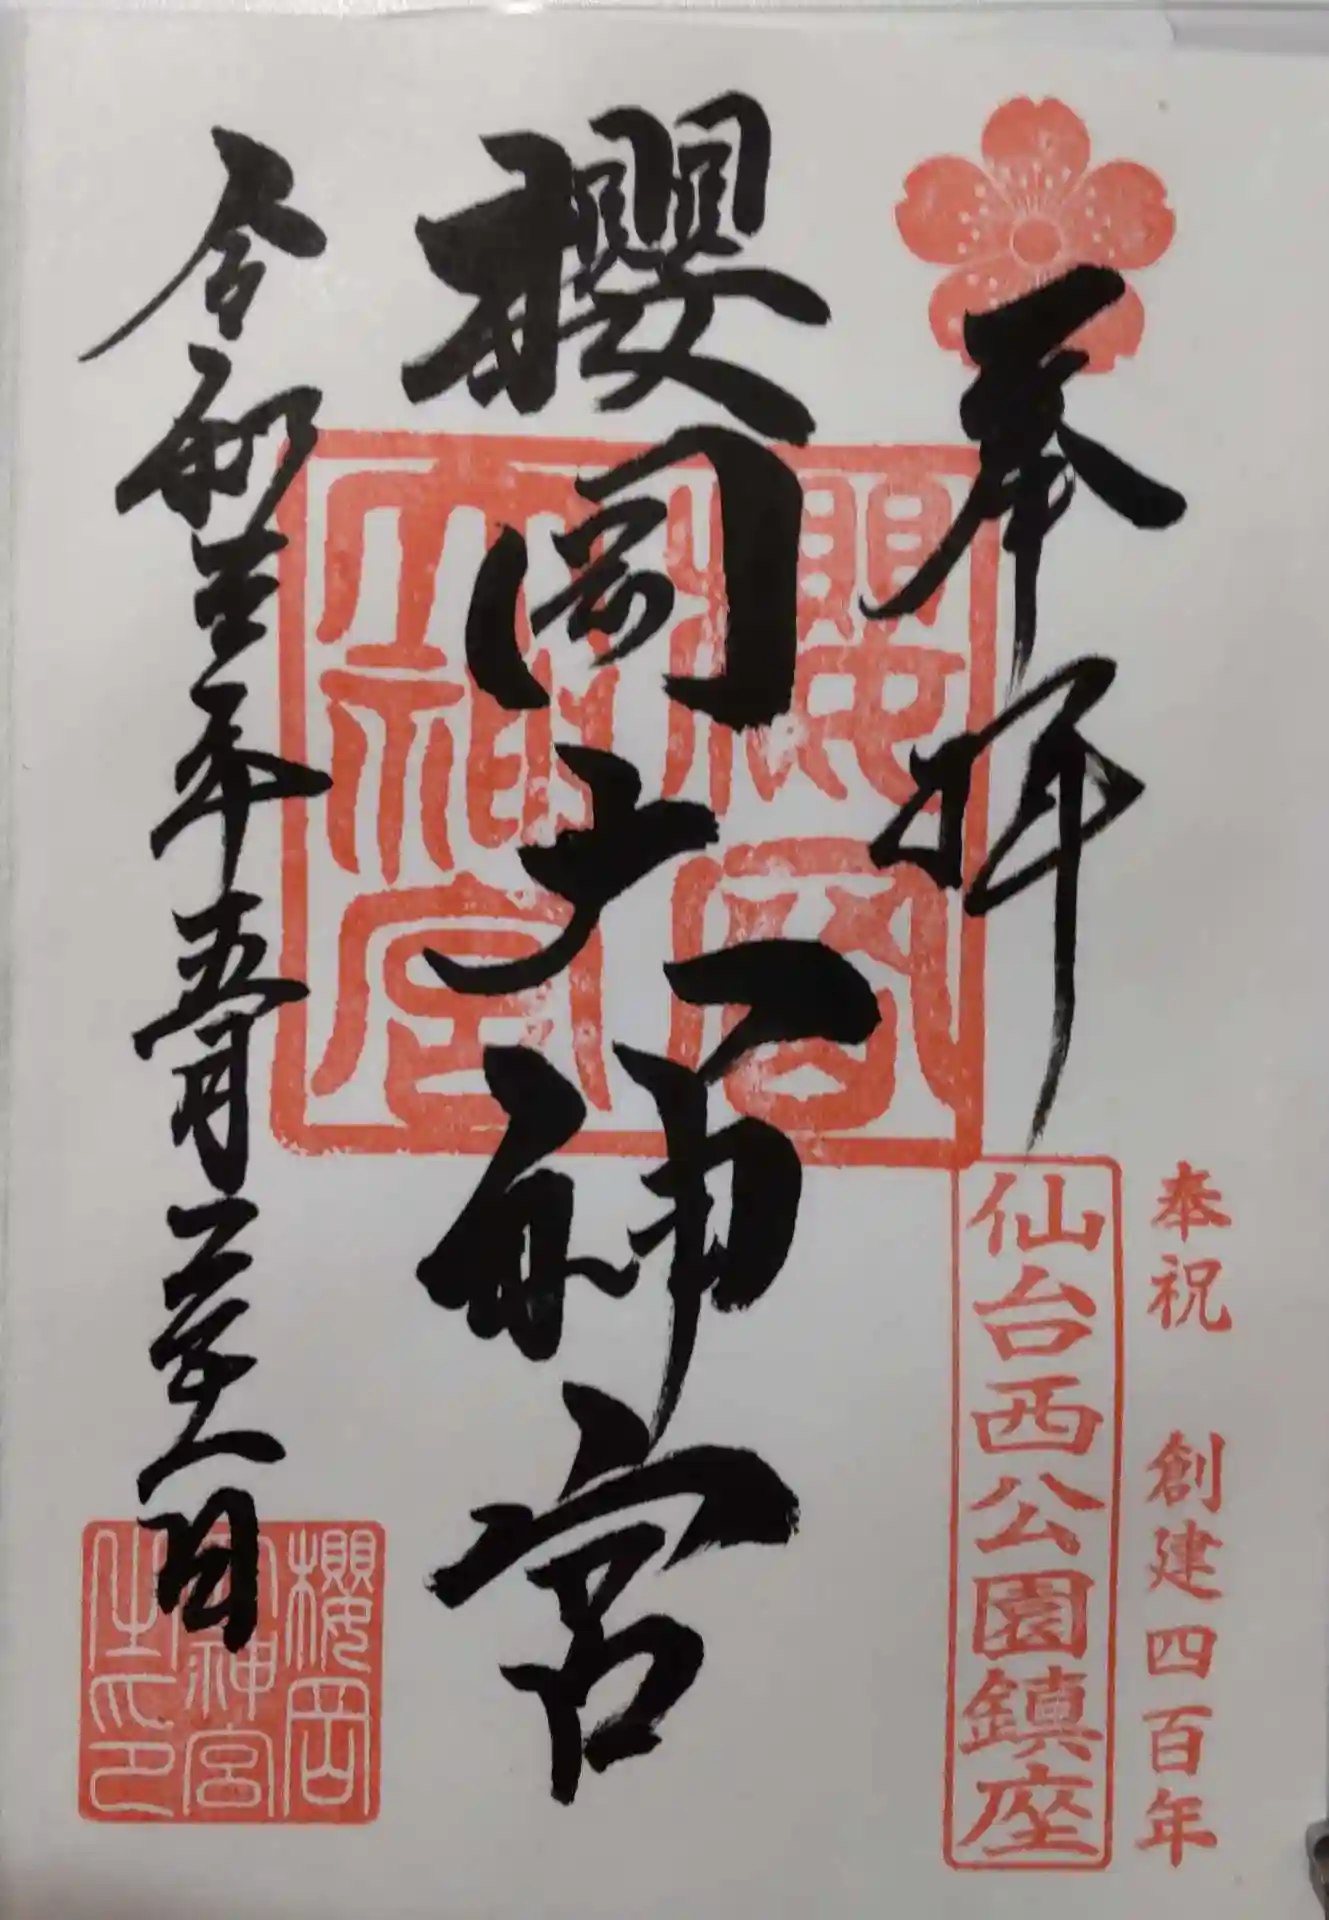 奉拝
奉祝 創建四百年
仙台西公園鎮座
櫻岡大神宮
櫻岡
大神宮
令和三年五月二十八日
櫻岡
大神宮
之印